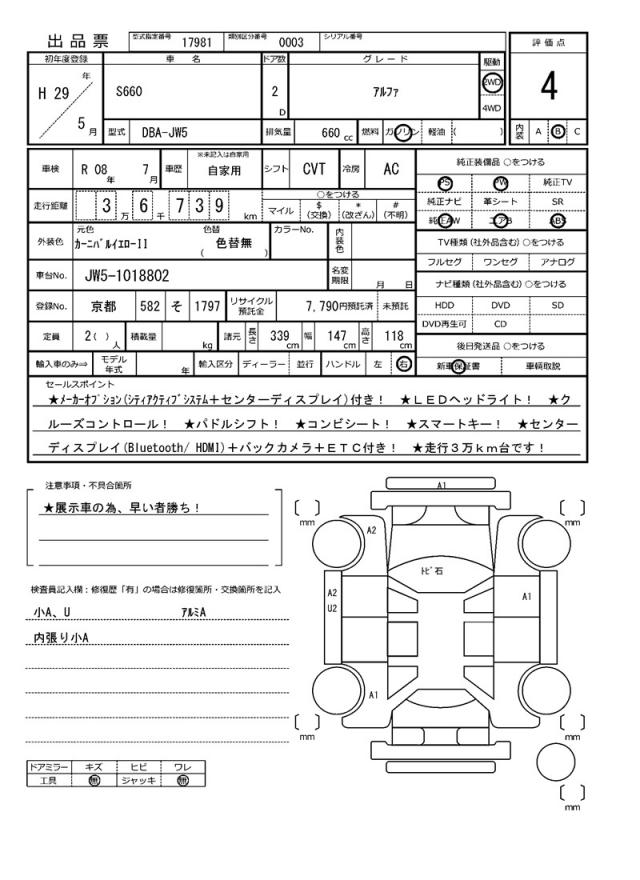 出品票 型式指定番号 17981 類別区分番号 0003 シリアル番号
評価点
4
内装 A B C
初年度登録 車名 ドア数 グレード 駆動
H 29 年 5 月 S660 2 D アルファ 2WD 4WD
型式 DBA-JW5 排気量 660 cc 燃料 ガソリン 軽油 ( )
車検 R 08 年 7 月 車歴 ※未記入は自家用 自家用 シフト CVT 冷房 AC
走行距離 3 万 6 千 7 3 9 km ○をつける マイル $ (交換) * (改ざん) # (不明)
外装色 元色 カーニバルイエローII 色替 ( 色替無 ) カラーNo. 内装色
車台No. JW5-1018802 名変期限 月 日
登録No. 京都 582 そ 1797 リサイクル預託金 7,790円預託済 未預託
定員 2( ) 人 積載量 kg 諸元 長さ 339 cm 幅 147 cm 高さ 118 cm
輸入車のみ⇒ モデル年式 年 輸入区分 ディーラー 並行 ハンドル 左 右
純正装備品 ○をつける
PS PW 純正TV
純正ナビ 革シート SR
純正AW エアB ABS
TV種類 (社外品含む) ○をつける
フルセグ ワンセグ アナログ
ナビ種類 (社外品含む) ○をつける
HDD DVD SD
DVD再生可 CD
後日発送品 ○をつける
新車保証書 車輌取説
セールスポイント
★メーカーオプション(シティアクティブシステム＋センターディスプレイ)付き！ ★ＬＥＤヘッドライト！ ★ク
ルーズコントロール！ ★パドルシフト！ ★コンビシート！ ★スマートキー！ ★センター
ディスプレイ(Bluetooth/ HDMI)＋バックカメラ＋ＥＴＣ付き！ ★走行３万ｋｍ台です！
注意事項・不具合箇所
★展示車の為、早い者勝ち！
検査員記入欄：修復歴「有」の場合は修復箇所・交換箇所を記入
小A、U アルミA
内張り小A
ドアミラー キズ ヒビ ワレ
工具 無 ジャッキ 無
A1
mm
mm
A2
トビ石
A2
U2
A1
A1
mm
mm
mm